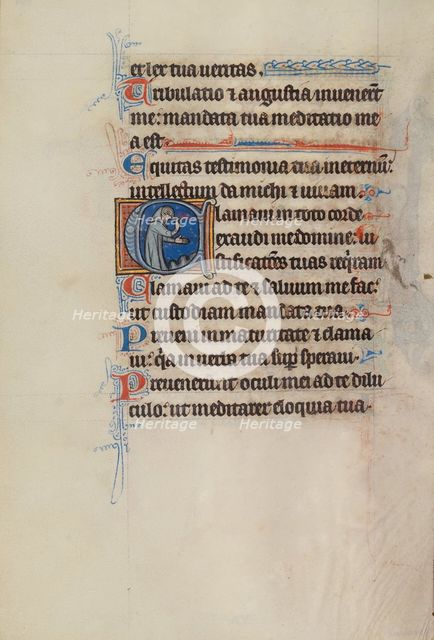 et lex tua veritas.
Tribulatio ⁊ angustia inuenerūt
me: mandata tua meditatio me
a est.
Equitas testimonia tua in eternū:
intellectum da michi ⁊ uiuam.
Clamaui in toto corde
exaudi me domine: iu
stificatiōes tuas reqͥram
Clamaui ad te ⁊ saluum me fac:
ut custodiam mandata tua.
Preueni in maturitate ⁊ clama
ui: qͥa in uerba tua suꝑ speraui.
Preuenerunt oculi mei ad te dilu
culo: ut meditarer eloquia tua.
Heritage Images